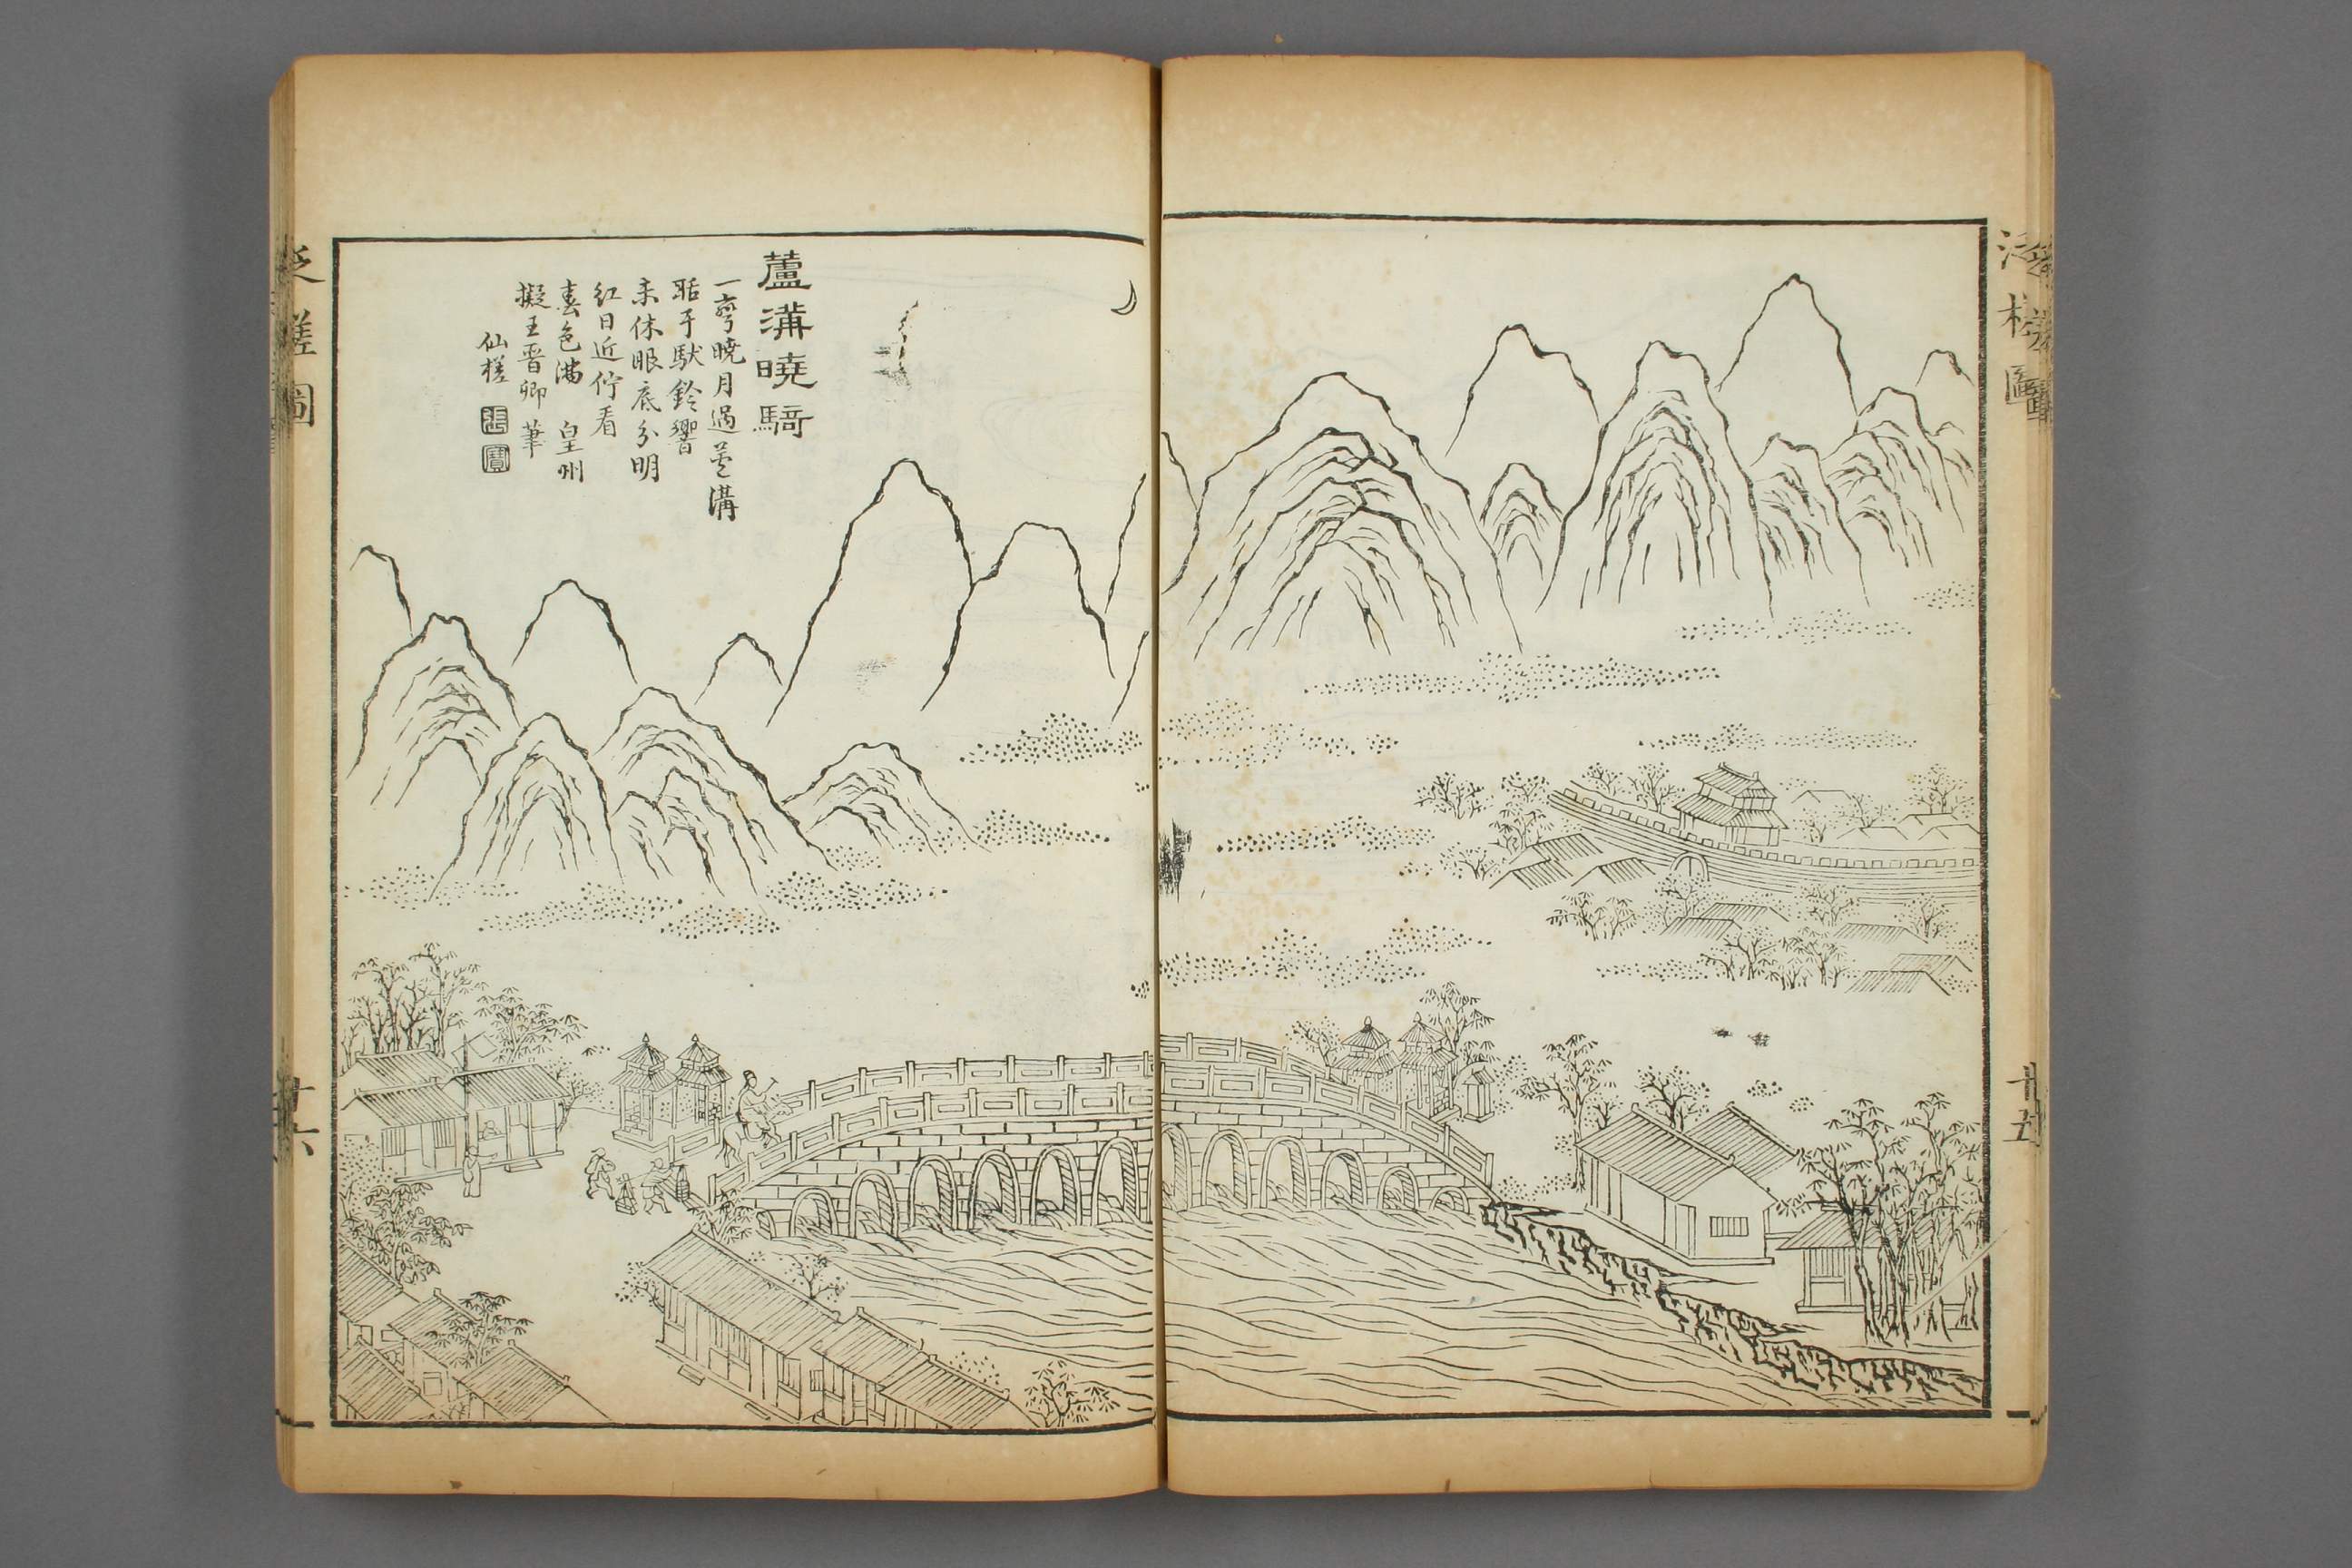 蘆溝曉騎
一彎曉月過蘆溝
聒耳馱鈴響
未休眼底分明
紅日近佇看
春色滿 皇州
擬王晉卿筆
仙槎
張寶
泛槎圖
廿五
泛槎圖
廿六